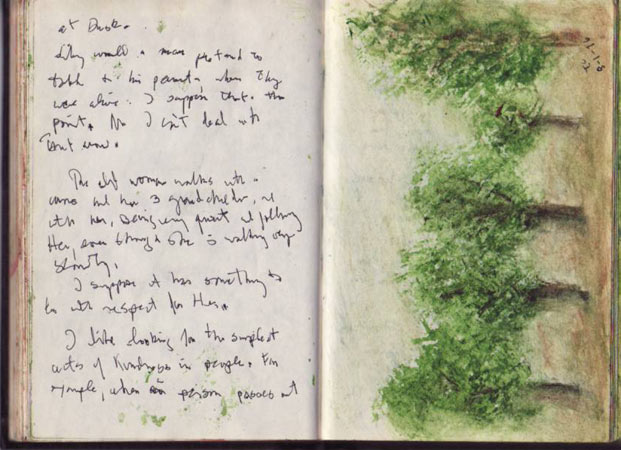 at Dusk.
Why would a man pretend to
talk to his parents when they
were alive. I suppose that's the
point. No I can't deal with
that now.
The old woman walks with a
cane and her 3 grandchildren, all
with her, being very quiet and following
Her, even though she is walking very
slowly.
I suppose it has something to
do with respect for Her.
I like looking for the simplest
acts of Kindness in people. For
example, when a person passes out